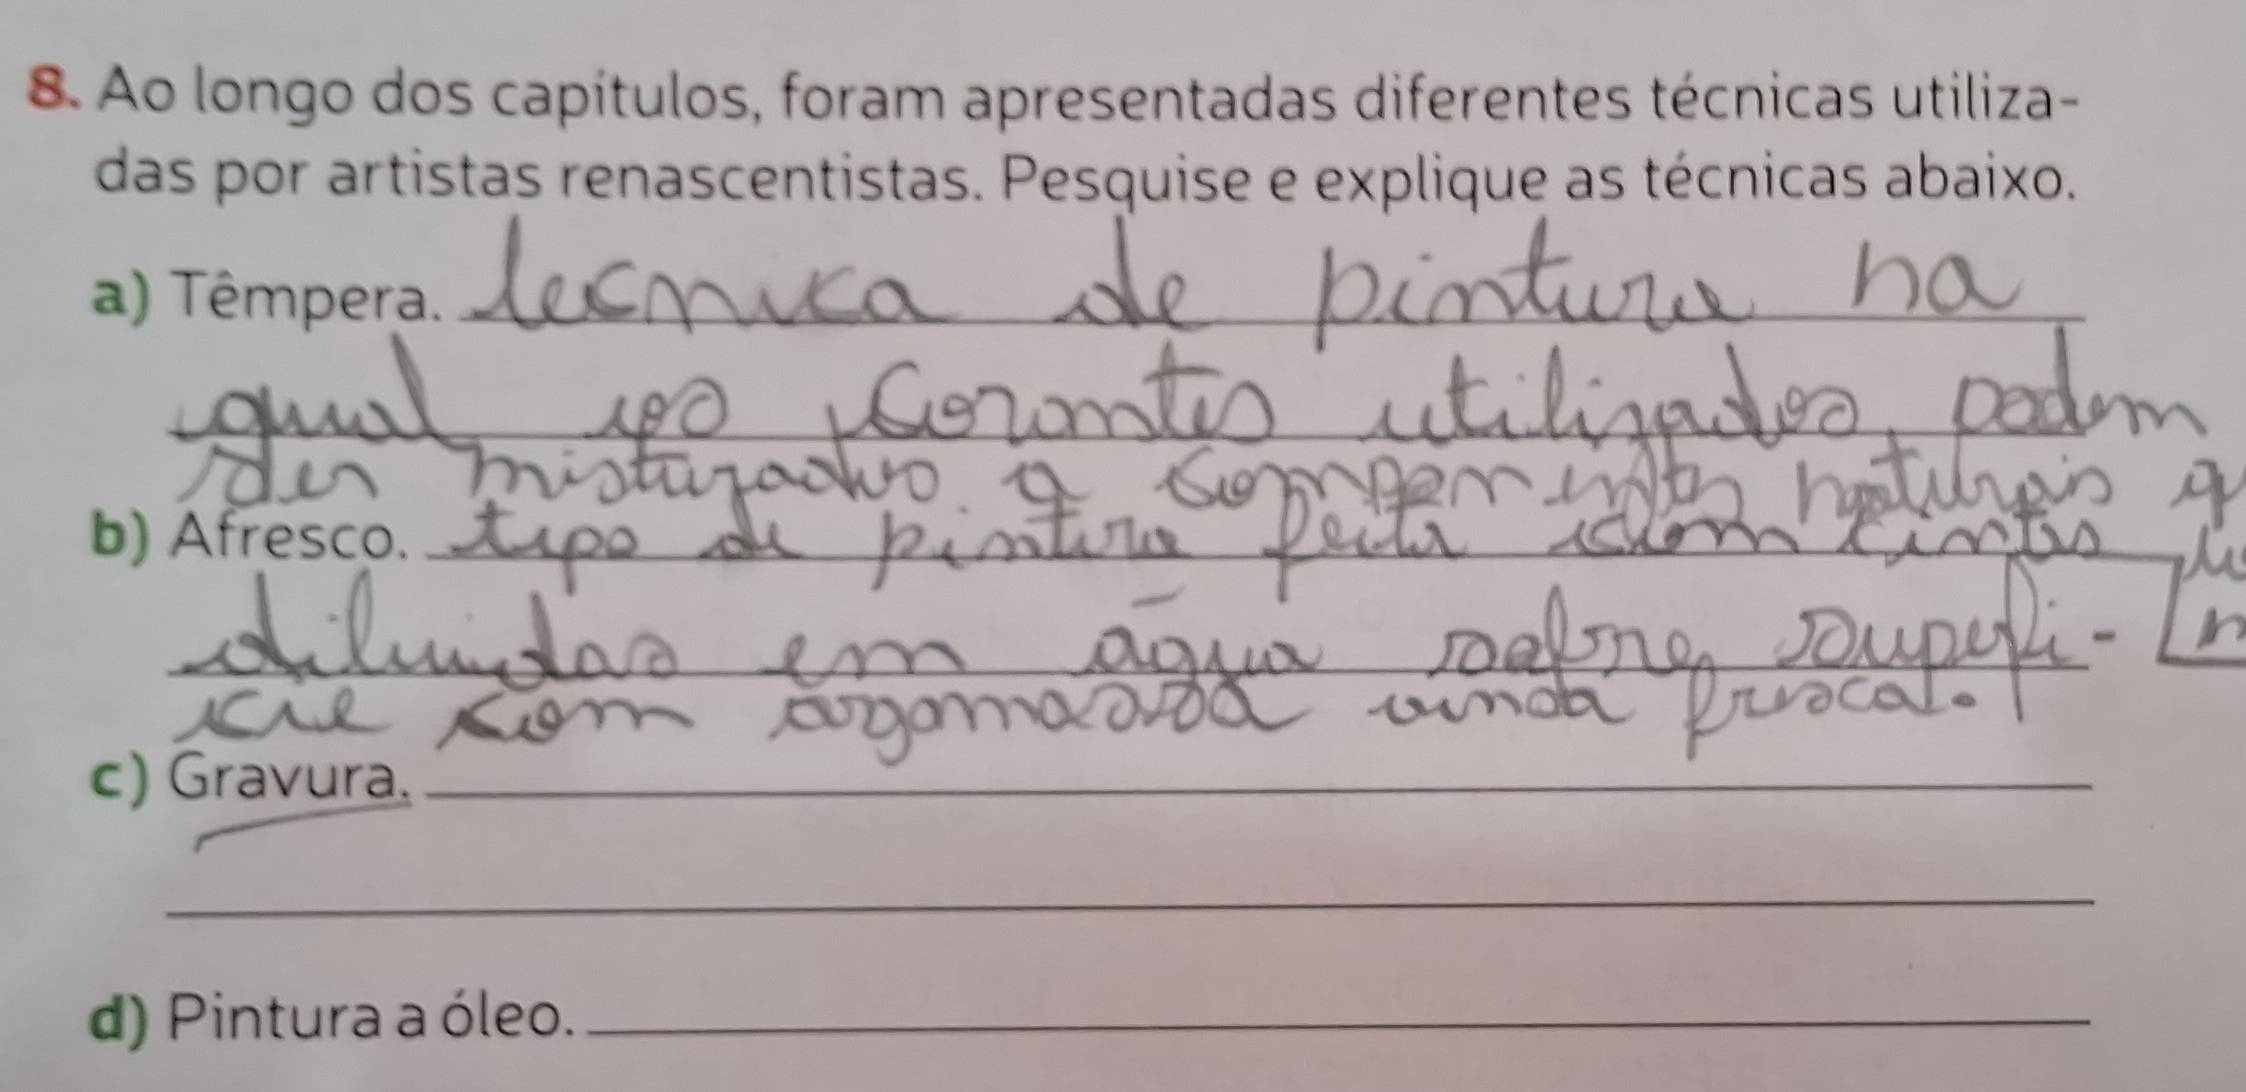 8. Ao longo dos capítulos, foram apresentadas diferentes técnicas utiliza-
das por artistas renascentistas. Pesquise e explique as técnicas abaixo.
a) Têmpera. tecnica de pintura na
qual os corantes utilizados podem
ser misturados a componentes naturais q
b) Afresco. tipo de pintura feita com tintas
diluidas em água sobre superfi-
cie com argamassa ainda fresca.
c) Gravura.
d) Pintura a óleo.